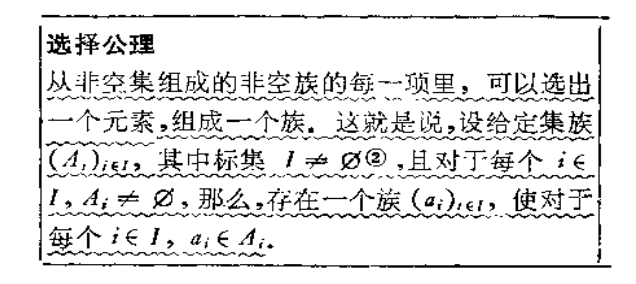 选择公理
从非空集组成的非空族的每一项里，可以选出
一个元素,组成一个族。这就是说,设给定集族
(Aᵢ)ᵢ∈I，其中标集 I ≠ ∅②,且对于每个 i ∈
I，Aᵢ ≠ ∅，那么,存在一个族 (aᵢ)ᵢ∈I，使对于
每个 i ∈ I，aᵢ ∈ Aᵢ.